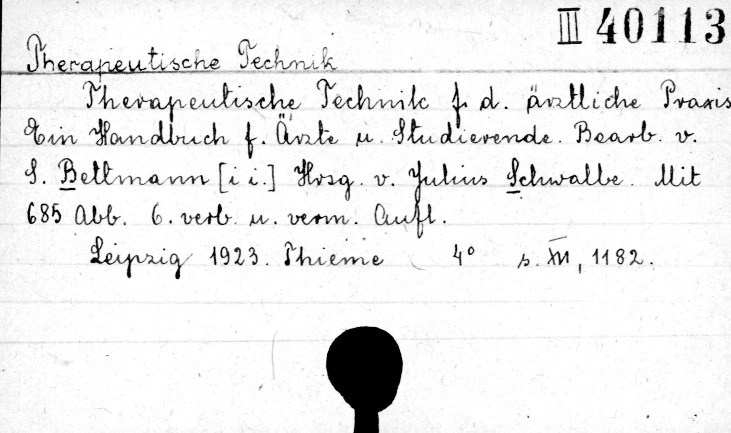 III 40113
Therapeutische Technik
Therapeutische Technik f. d. ärztliche Praxis
Ein Handbuch f. Ärzte u. Studierende. Bearb. v.
S. Bettmann [i i.] Hrsg. v. Julius Schwalbe. Mit
685 Abb. 6. verb. u. verm. Aufl.
Leipzig 1923. Thieme 4° s. XII, 1182.